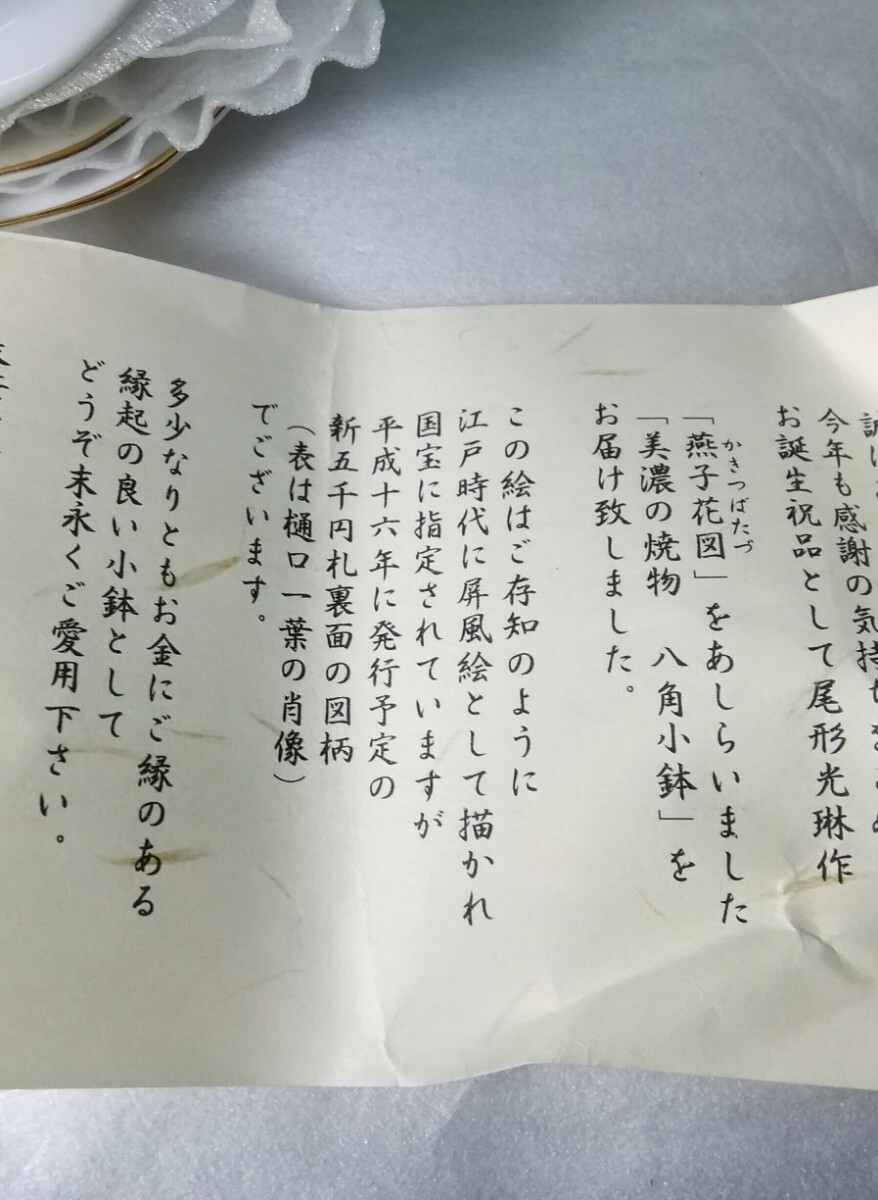 今年も感謝の気持ちをこめ
お誕生祝品として尾形光琳作
「燕子花図」をあしらいました
かきつばたづ
「美濃の焼物　八角小鉢」を
お届け致しました。
この絵はご存知のように
江戸時代に屏風絵として描かれ
国宝に指定されていますが
平成十六年に発行予定の
新五千円札裏面の図柄
（表は樋口一葉の肖像）
でございます。
多少なりともお金にご縁のある
縁起の良い小鉢として
どうぞ末永くご愛用下さい。